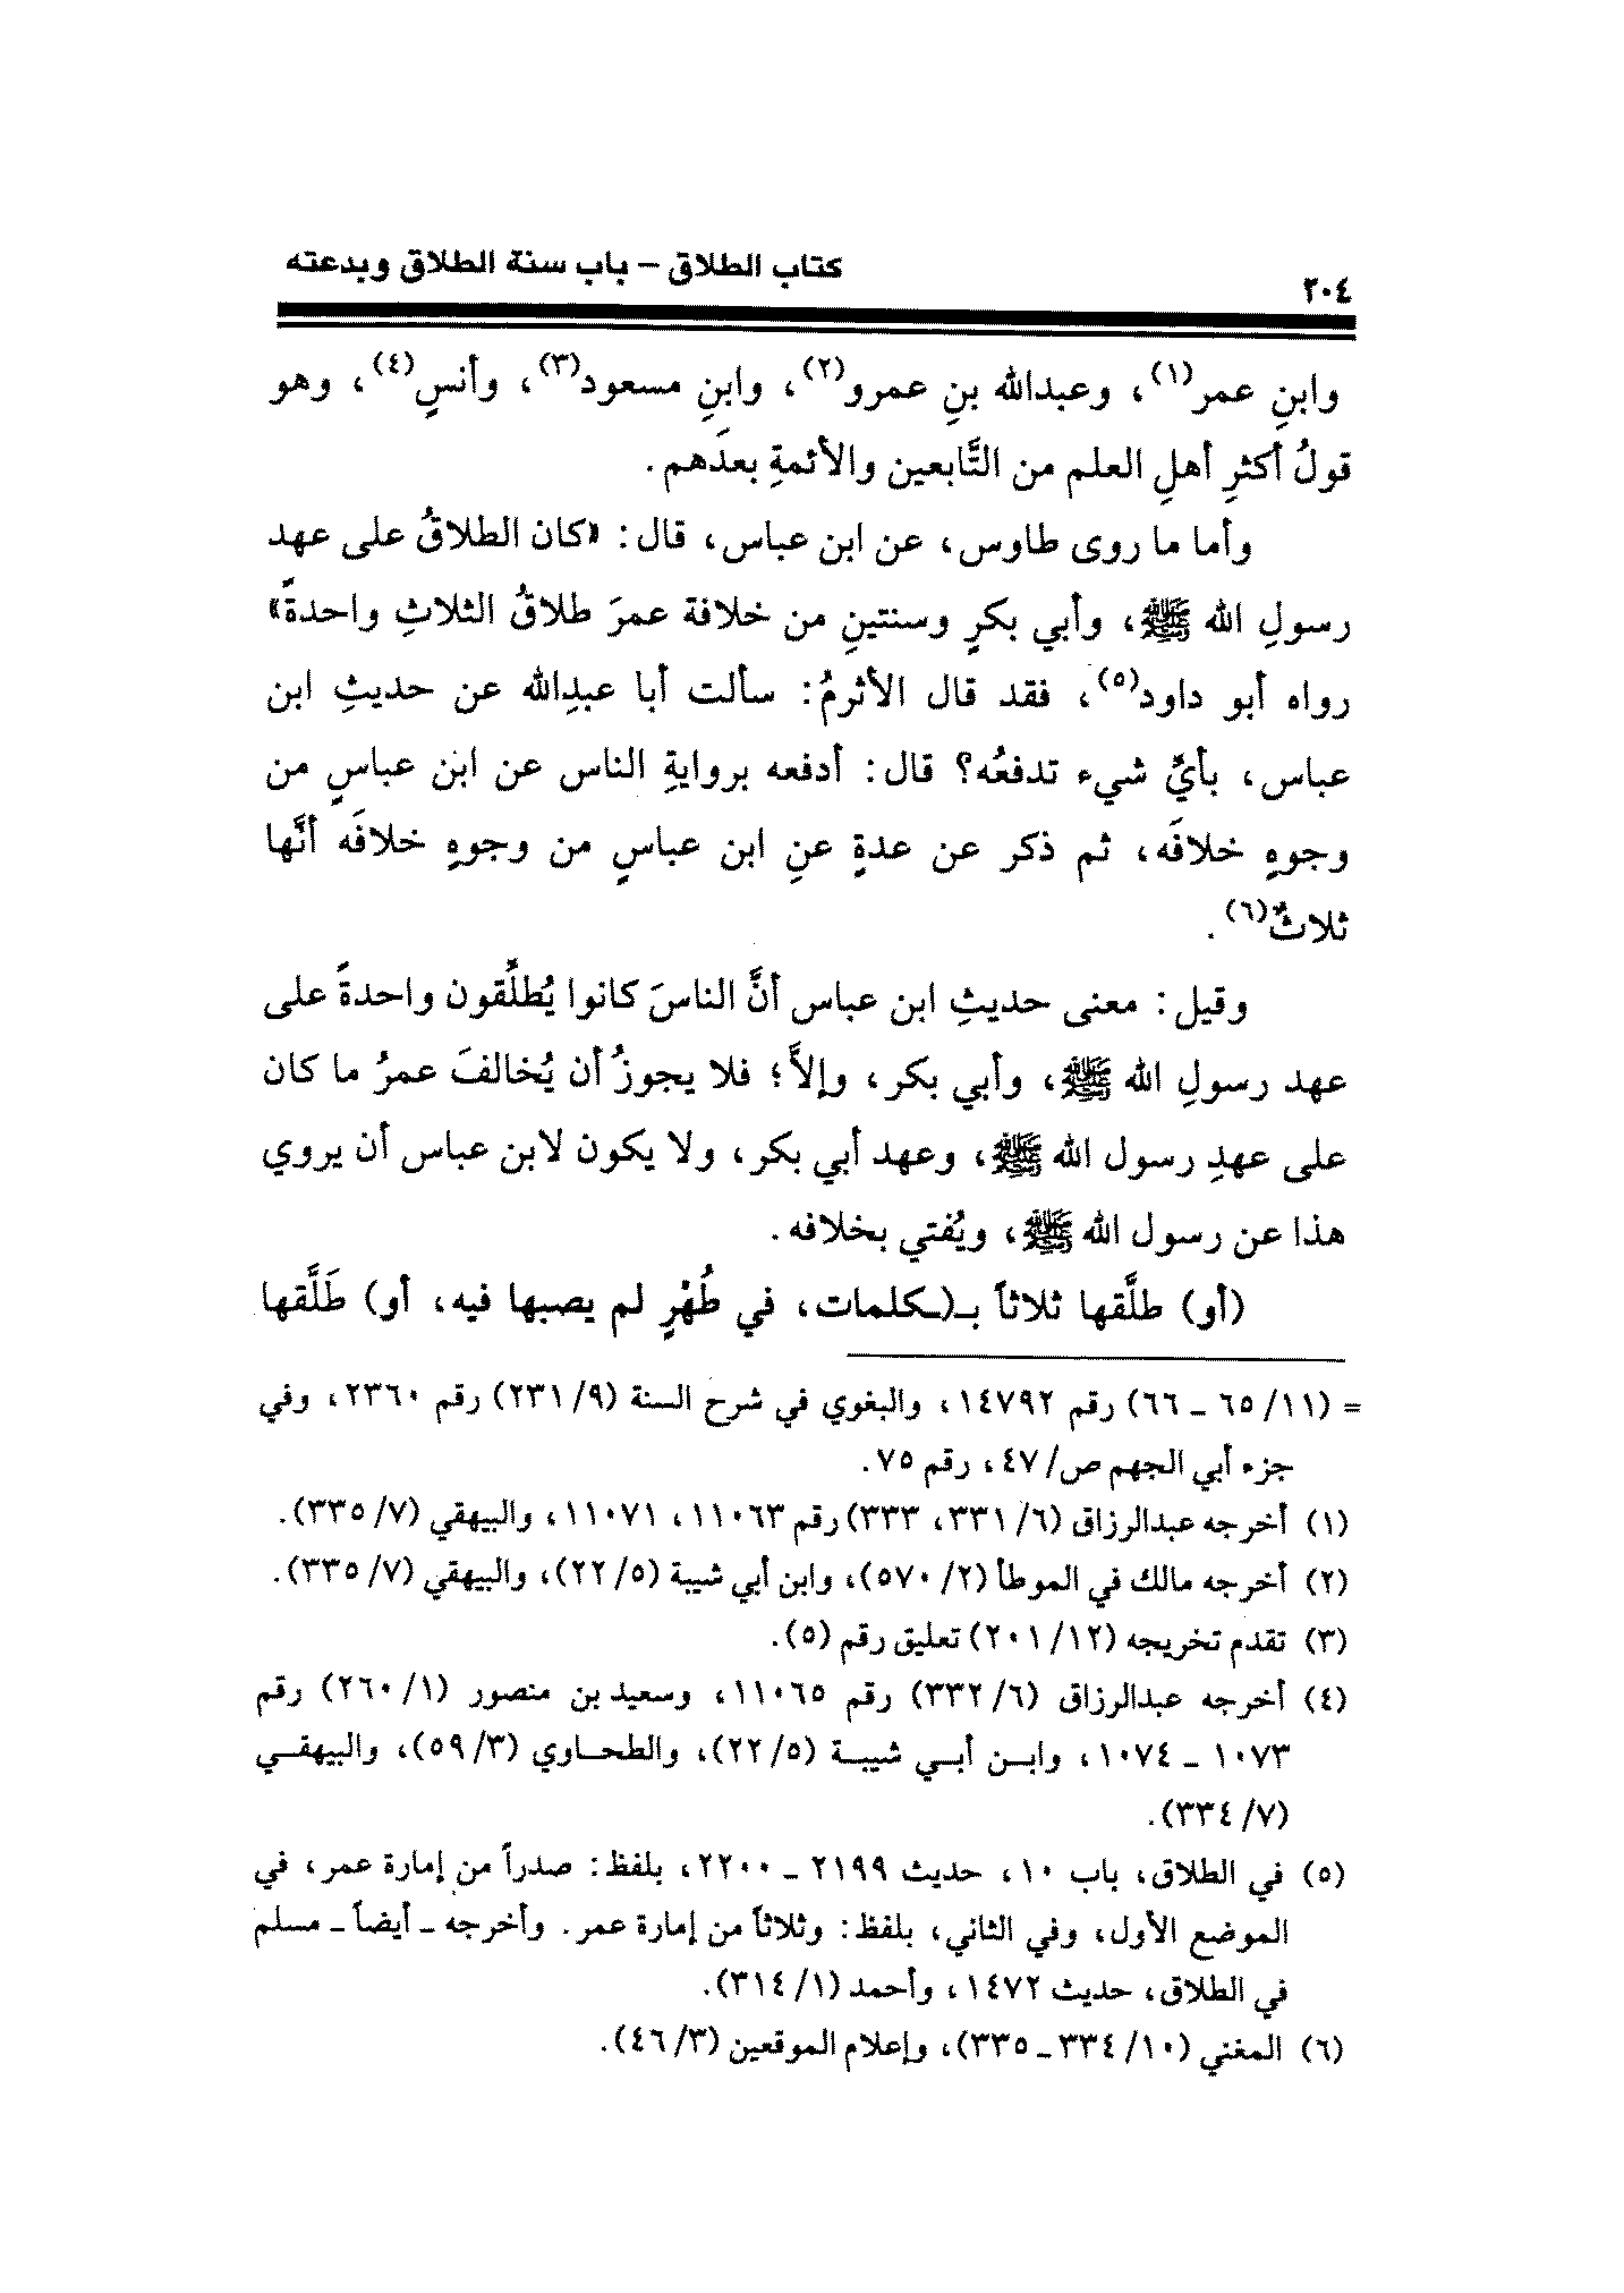 كتاب الطلاق – باب سنة الطلاق وبدعته
٢٠٤
وابنِ عمر(١)، وعبدالله بنِ عمرو(٢)، وابنِ مسعود(٣)، وأنسٍ(٤)، وهو
قولُ أكثرِ أهلِ العلم من التَّابعين والأئمةِ بعدَهم.
وأما ما روى طاوس، عن ابن عباس، قال: «كان الطلاقُ على عهد
رسولِ الله ﷺ، وأبي بكرٍ وسنتينِ من خلافة عمرَ طلاقُ الثلاثِ واحدةً»
رواه أبو داود(٥)، فقد قال الأثرمُ: سألت أبا عبدِالله عن حديثِ ابن
عباس، بأيِّ شيء تدفعُه؟ قال: أدفعه بروايةِ الناس عن ابن عباسٍ من
وجوهٍ خلافَه، ثم ذكر عن عدةٍ عنِ ابن عباسٍ من وجوهٍ خلافَه أنَّها
ثلاثٌ(٦).
وقيل: معنى حديثِ ابن عباس أنَّ الناسَ كانوا يُطلِّقون واحدةً على
عهد رسولِ الله ﷺ، وأبي بكر، وإلاَّ؛ فلا يجوزُ أن يُخالفَ عمرُ ما كان
على عهدِ رسول الله ﷺ، وعهد أبي بكر، ولا يكون لابن عباس أن يروي
هذا عن رسول الله ﷺ، ويُفتي بخلافه.
(أو) طلَّقها ثلاثاً بـ(ـكلمات، في طُهْرٍ لم يصبها فيه، أو) طَلَّقها
= (١١/ ٦٥ ـ ٦٦) رقم ١٤٧٩٢، والبغوي في شرح السنة (٩/ ٢٣١) رقم ٢٣٦٠، وفي
جزء أبي الجهم ص/ ٤٧، رقم ٧٥.
(١) أخرجه عبدالرزاق (٦/ ٣٣١، ٣٣٣) رقم ١١٠٦٣، ١١٠٧١، والبيهقي (٧/ ٣٣٥).
(٢) أخرجه مالك في الموطأ (٢/ ٥٧٠)، وابن أبي شيبة (٥/ ٢٢)، والبيهقي (٧/ ٣٣٥).
(٣) تقدم تخريجه (١٢/ ٢٠١) تعليق رقم (٥).
(٤) أخرجه عبدالرزاق (٦/ ٣٣٢) رقم ١١٠٦٥، وسعيد بن منصور (١/ ٢٦٠) رقم
١٠٧٣ ـ ١٠٧٤، وابـن أبـي شيبـة (٥/ ٢٢)، والطحـاوي (٣/ ٥٩)، والبيهقـي
(٧/ ٣٣٤).
(٥) في الطلاق، باب ١٠، حديث ٢١٩٩ ـ ٢٢٠٠، بلفظ: صدراً من إمارة عمر، في
الموضع الأول، وفي الثاني، بلفظ: وثلاثاً من إمارة عمر. وأخرجه ـ أيضاً ـ مسلم
في الطلاق، حديث ١٤٧٢، وأحمد (١/ ٣١٤).
(٦) المغني (١٠/ ٣٣٤ ـ ٣٣٥)، وإعلام الموقعين (٣/ ٤٦).